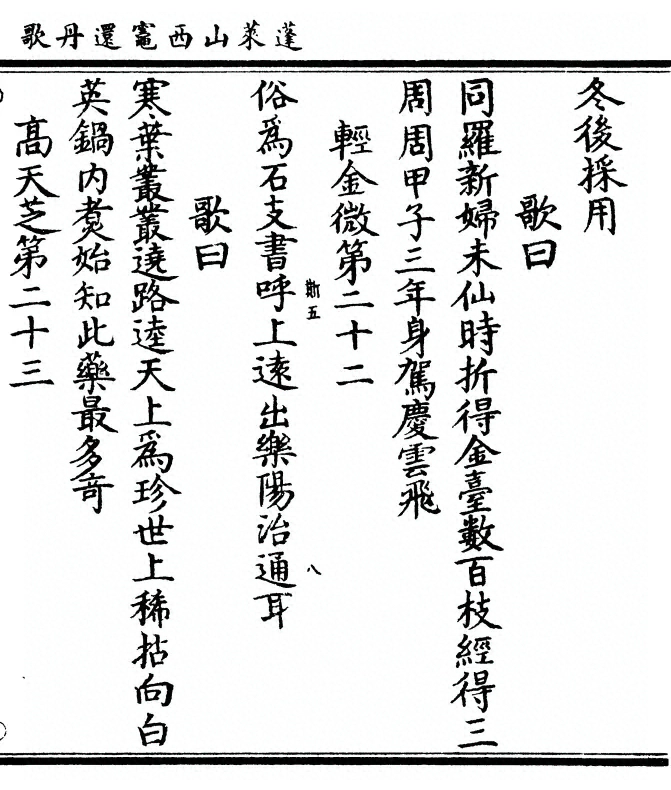 蓬萊山西竈還丹歌
冬後採用
歌曰
同羅新婦未仙時折得金臺數百枝經得三
周周甲子三年身駕慶雲飛
輕金微第二十二
俗為石支書呼上遠出樂陽治通耳
斯五
八
歌曰
寒葉叢叢遶路逵天上為珍世上稀拈向白
英鍋內煑始知此藥最多奇
高天芝第二十三